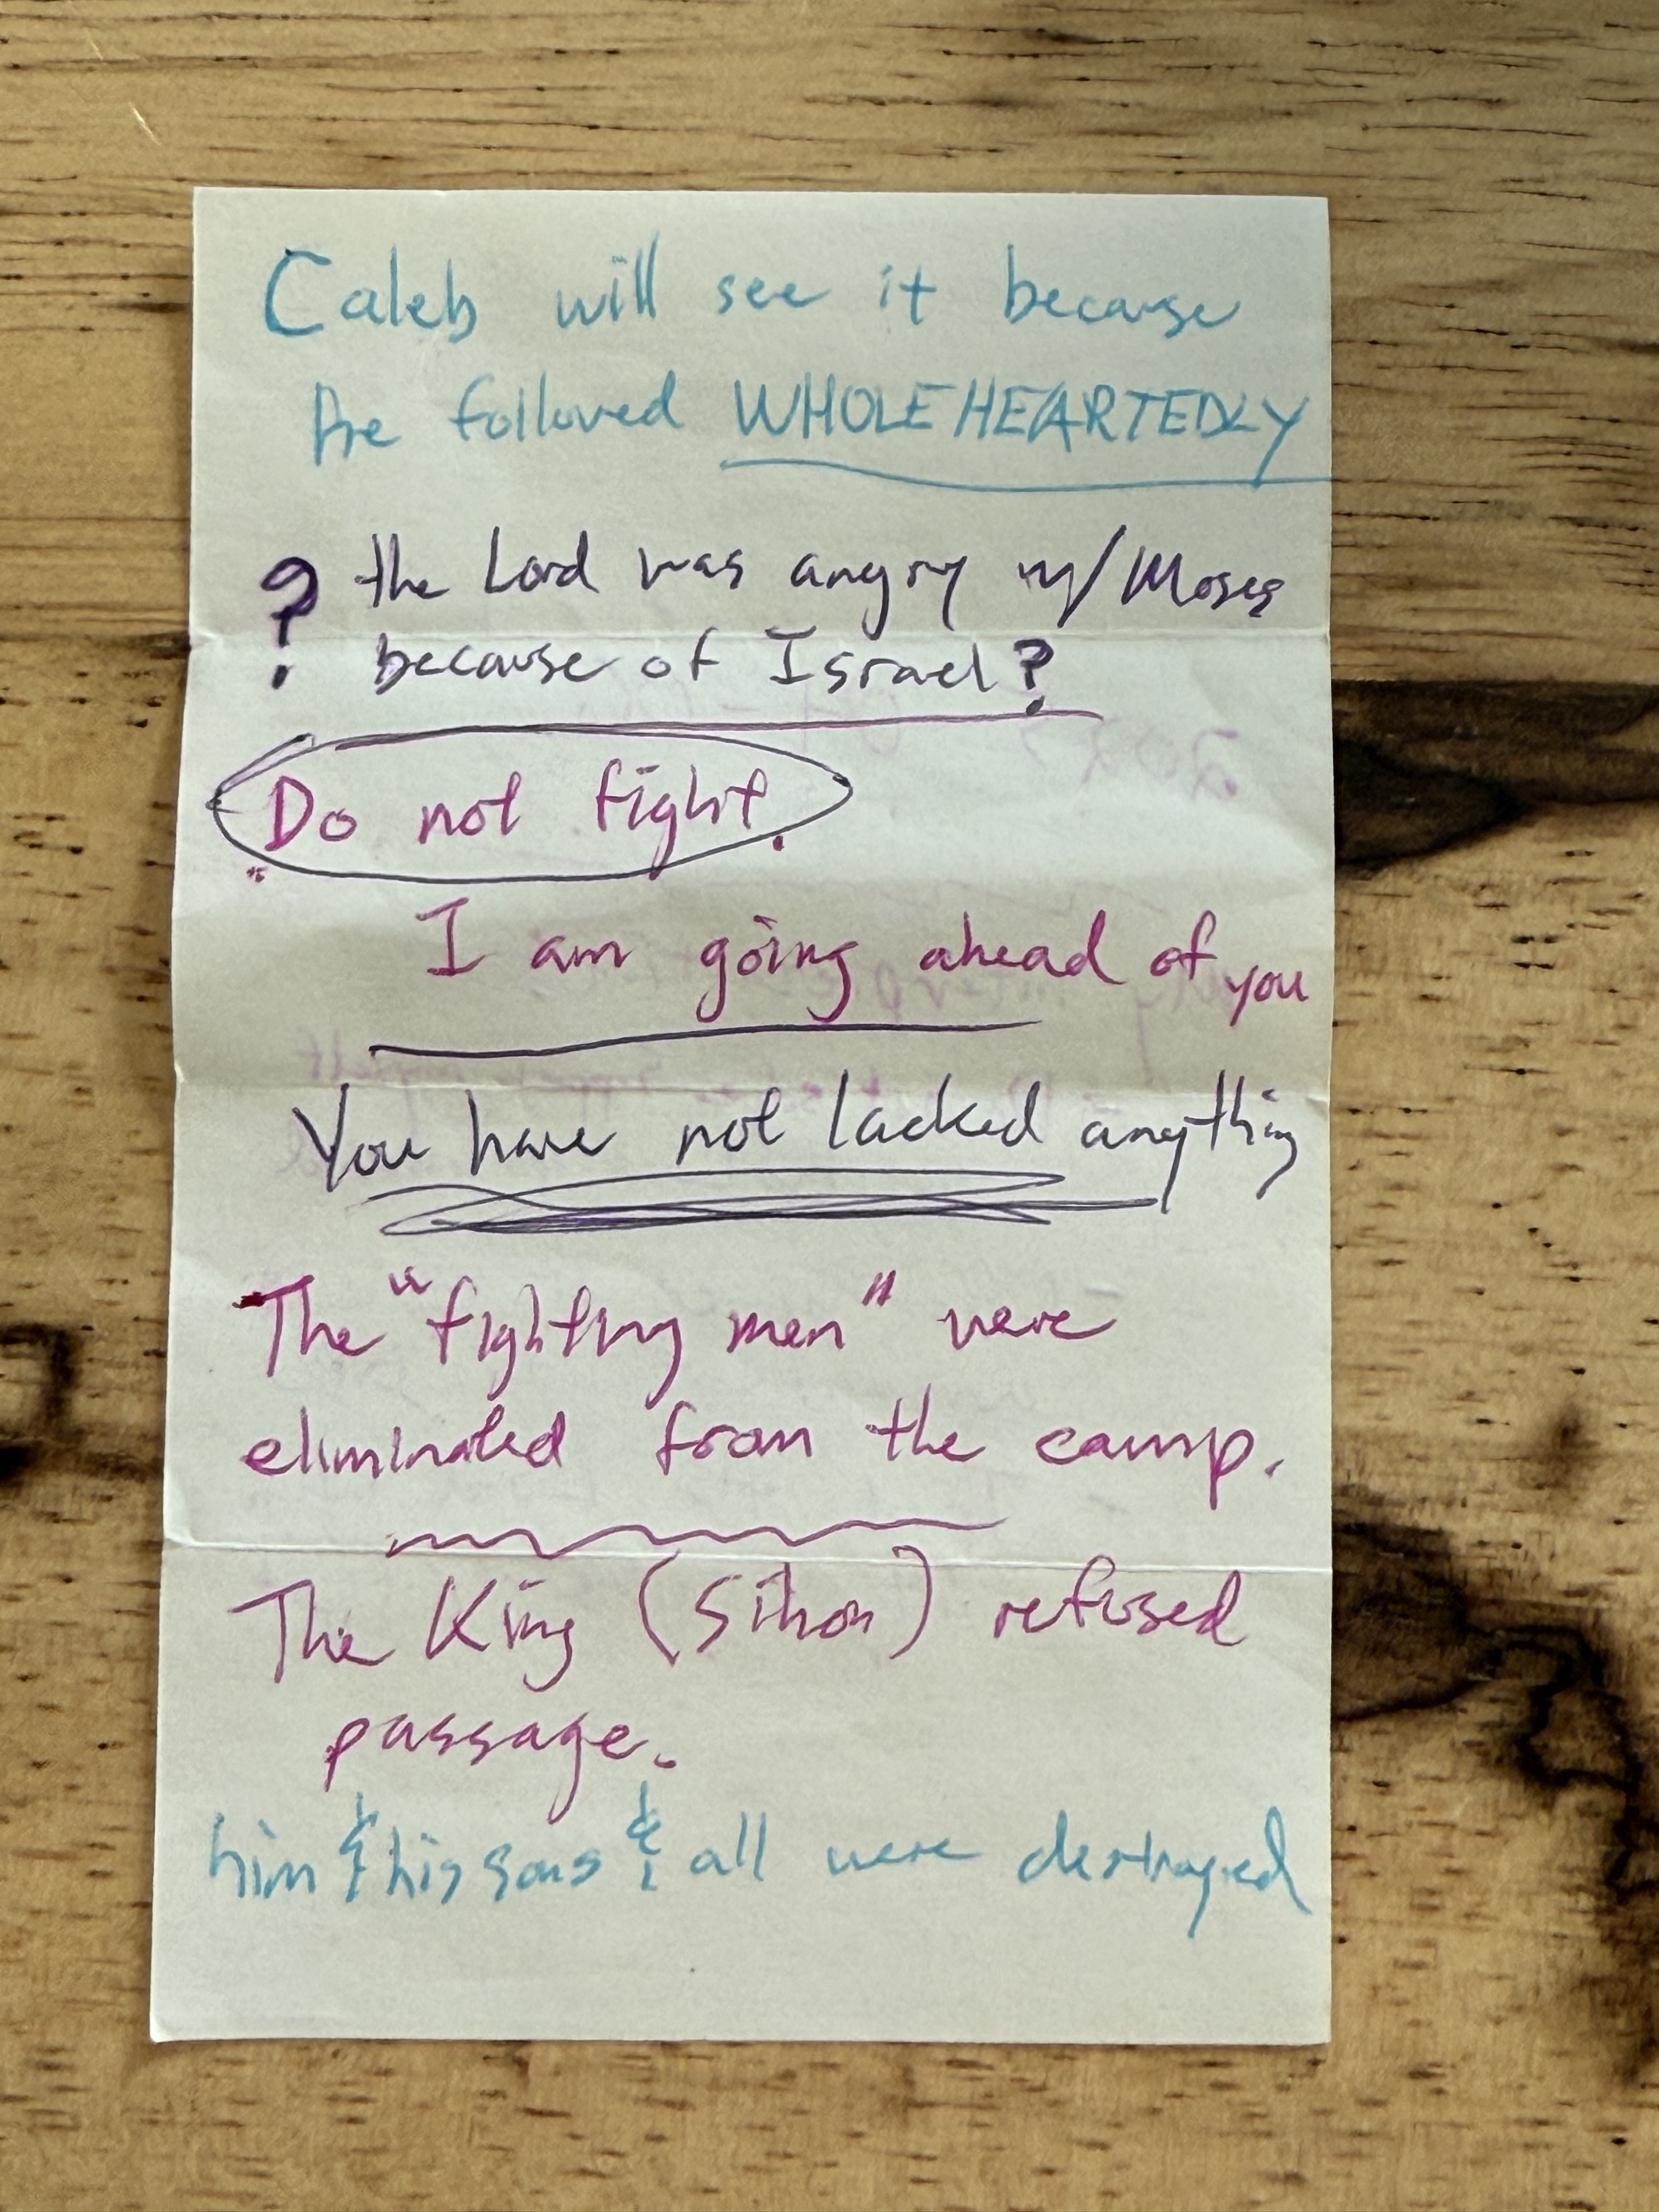 Caleb will see it because
he followed WHOLEHEARTEDLY
? the Lord was angry w/Moses
because of Israel?
Do not fight.
I am going ahead of you
You have not lacked anything
The "fighting men" were
eliminated from the camp.
The King (Sihon) refused
passage.
him & his sons & all were destroyed